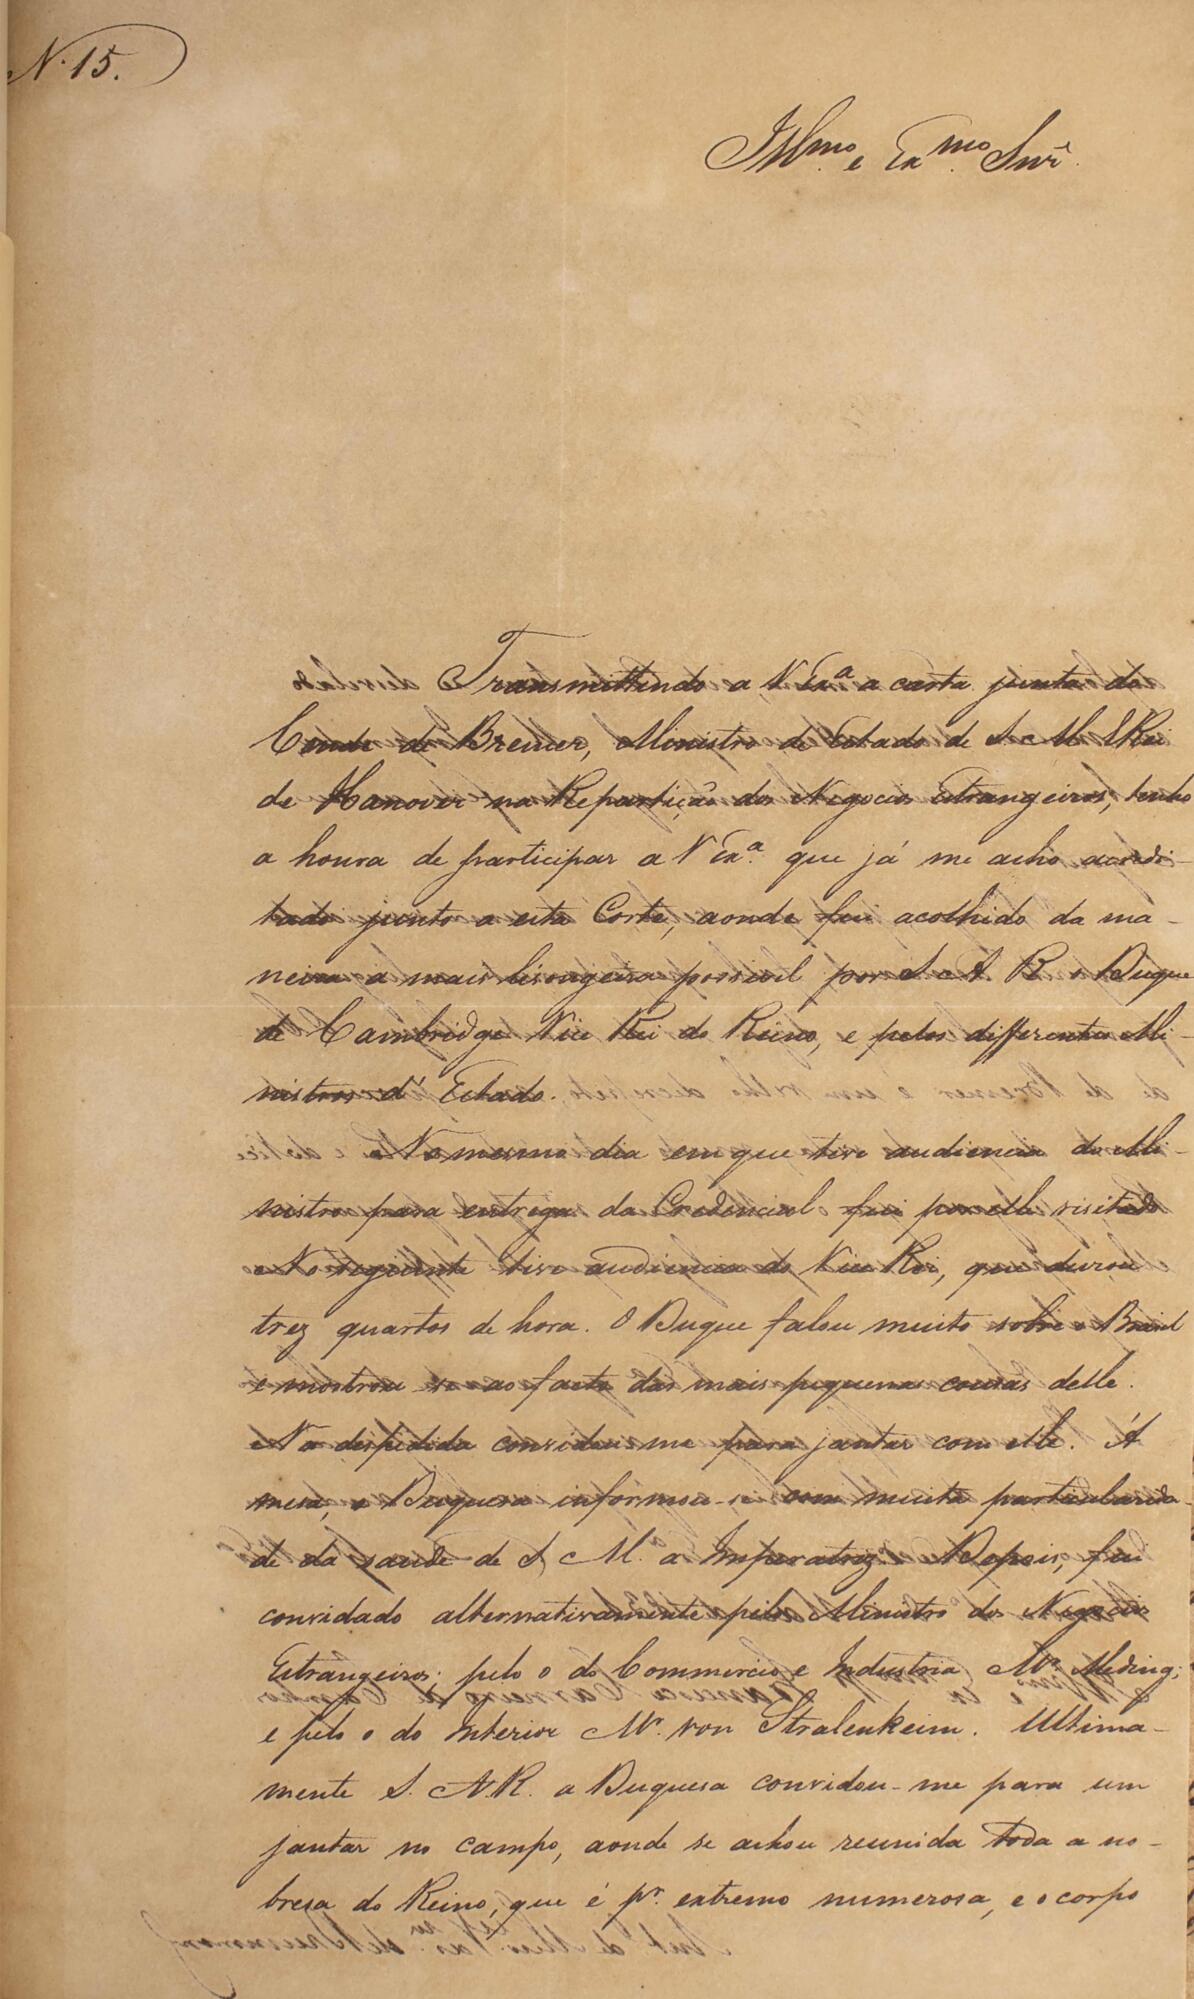 N. 15.
Illmo. e Exmo. Snr.
Transmittindo a V Exa a carta junta do
Conde de Bremer, Ministro de Estado de S. M. ElRei
de Hanover na Repartição dos Negocios Estrangeiros, tenho
a honra de participar a V Exa. que já me acho acredi-
tado junto a esta Corte, aonde fui acolhido da ma-
neira a mais lisongeira possivel por S. A. R. o Duque
de Cambridge Vice Rei do Reino, e pelos differentes Mi-
nistros d'Estado.
No mesmo dia em que tive audiencia do Mi-
nistro para entrega da Credencial fui por elle visitado
No seguinte tive audiencia do Vice Rei, que durou
trez quartos de hora. O Duque falou muito sobre o Brasil
e mostrou-se ao facto das mais pequenas cousas delle.
Na despedida convidou-me para jantar com elle. Á
mesa, a Duqueza informou-se com muita particularida-
de da saude de S. M.a a Imperatriz. Depois, fui
convidado alternativamente pelo Ministro dos Negocios
Estrangeiros; pelo o do Commercio e Industria Mr. Meding;
e pelo o do Interior Mr. von Stralenheim. Ultima-
mente S. A.R. a Duquesa convidou-me para um
jantar no campo, aonde se achou reunida toda a no-
bresa do Reino, que é pr. extremo numerosa, e o corpo